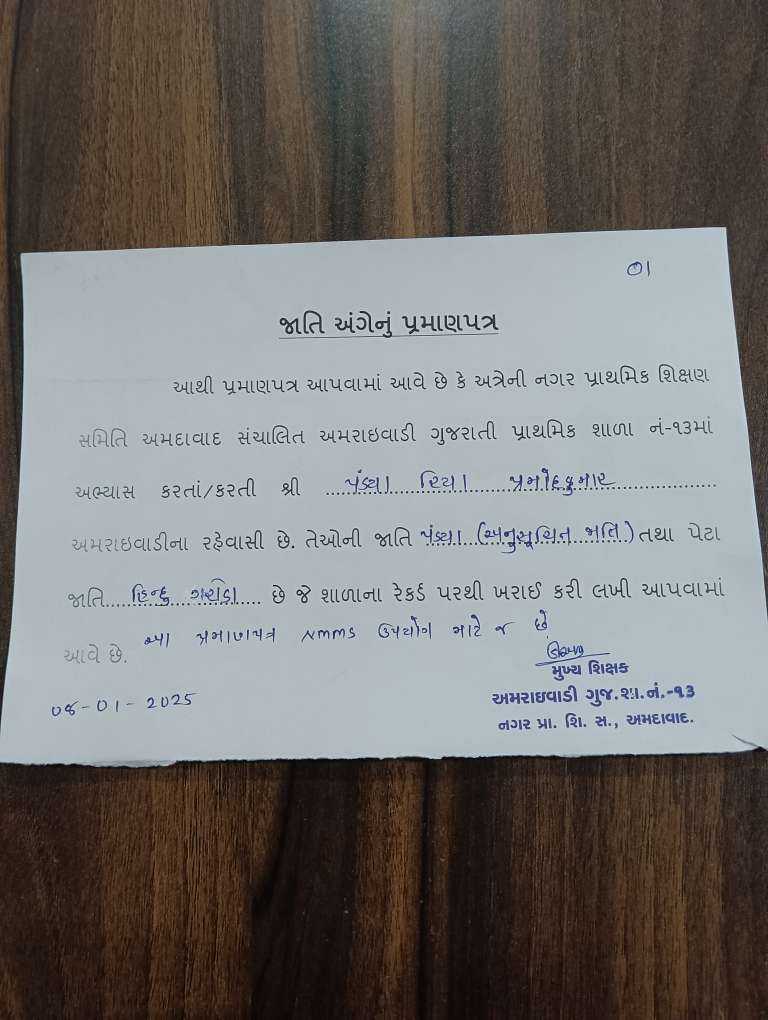 01
જાતિ અંગેનું પ્રમાણપત્ર
આથી પ્રમાણપત્ર આપવામાં આવે છે કે અત્રેની નગર પ્રાથમિક શિક્ષણ
સમિતિ અમદાવાદ સંચાલિત અમરાઇવાડી ગુજરાતી પ્રાથમિક શાળા નં-૧૩માં
અભ્યાસ કરતાં/કરતી શ્રી ...પંડ્યા રિયા પ્રમોદકુમાર...
અમરાઇવાડીના રહેવાસી છે. તેઓની જાતિ પંડ્યા (અનુસૂચિત જાતિ) તથા પેટા
જાતિ...હિન્દુ ગરોડા... છે જે શાળાના રેકર્ડ પરથી ખરાઈ કરી લખી આપવામાં
આવે છે. આ પ્રમાણપત્ર NMMS ઉપયોગ માટે જ છે
મુખ્ય શિક્ષક
અમરાઇવાડી ગુજ.શા.નં.-૧૩
નગર પ્રા. શિ. સ., અમદાવાદ.
08-01-2025